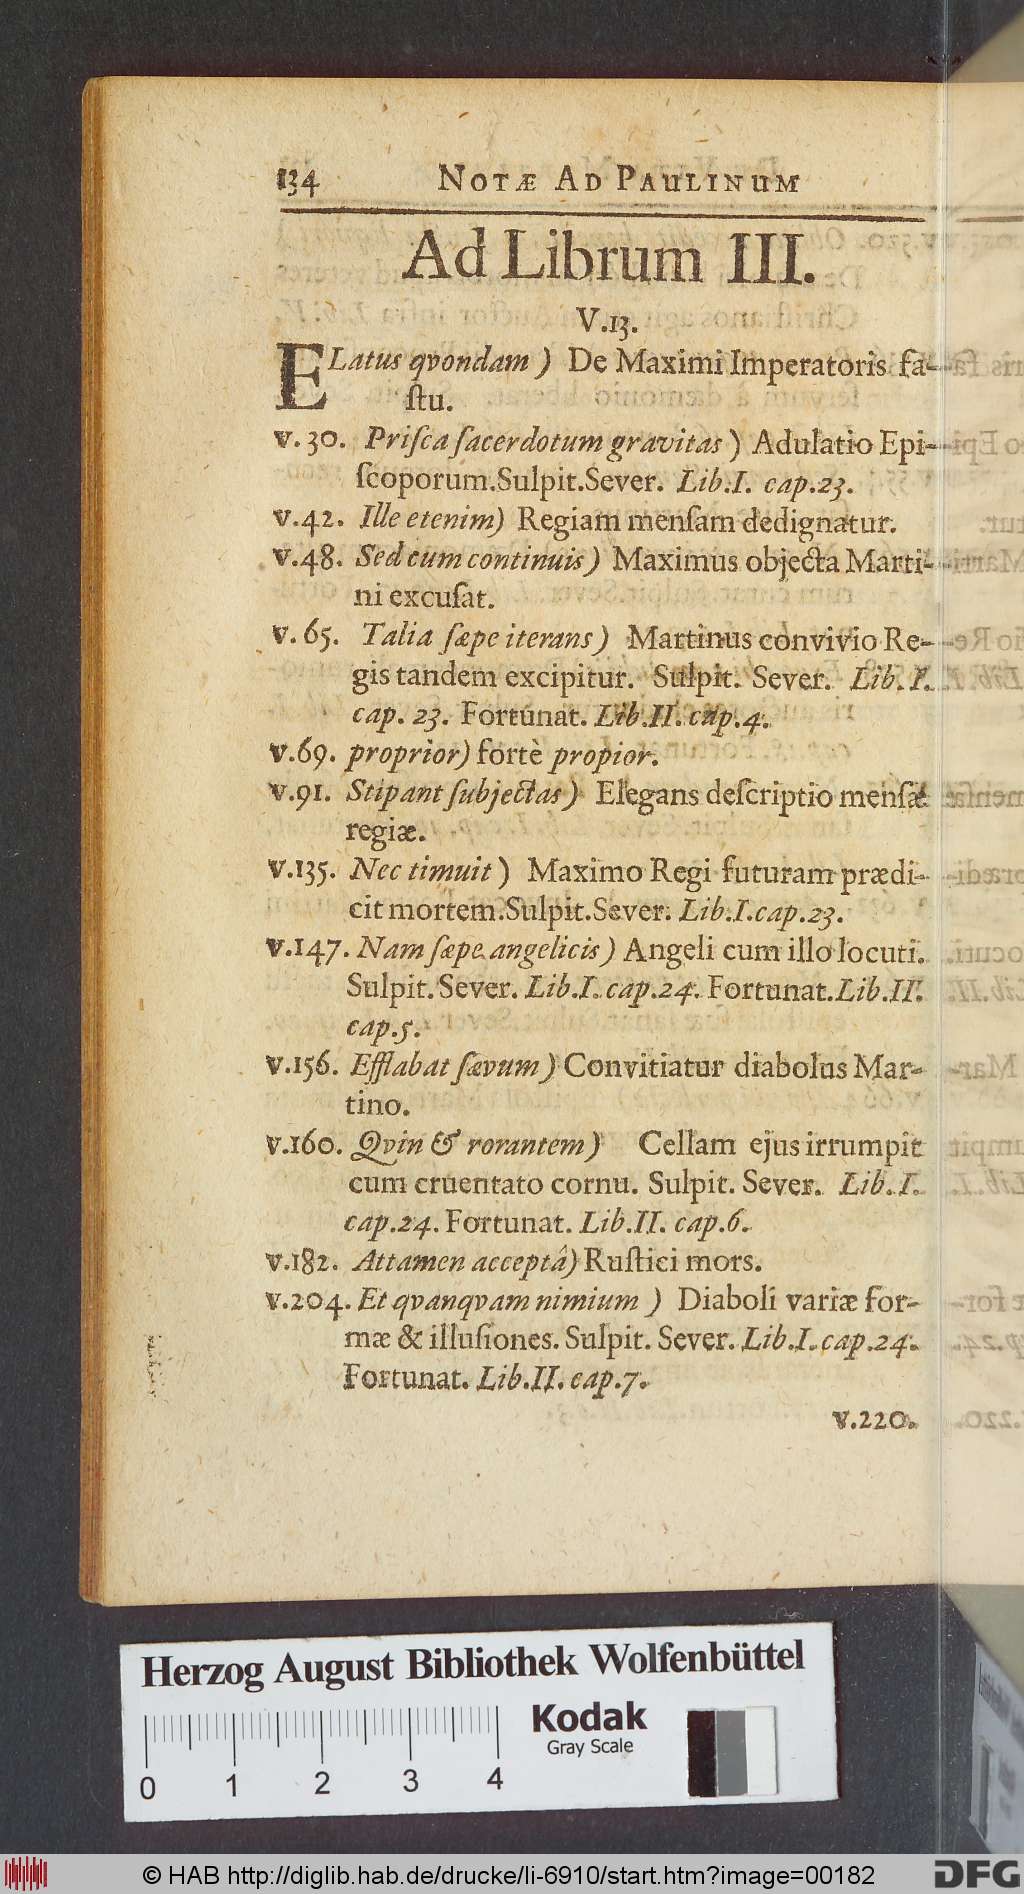 134 NOTÆ AD PAULINUM
Ad Librum III.
V.13.
ELatus qvondam) De Maximi Imperatoris fa-
ſtu.
v.30. Priſca ſacerdotum gravitas) Adulatio Epi-
ſcoporum.Sulpit.Sever. Lib.I. cap.23.
v.42. Ille etenim) Regiam menſam dedignatur.
v.48. Sed cum continuis) Maximus objecta Marti-
ni excuſat.
v.65. Talia ſæpe iterans) Martinus convivio Re-
gis tandem excipitur. Sulpit. Sever. Lib.I.
cap. 23. Fortunat. Lib.II. cap.4.
v.69. proprior) fortè propior.
v.91. Stipant ſubjectas) Elegans deſcriptio menſæ
regiæ.
v.135. Nec timuit) Maximo Regi futuram prædi-
cit mortem.Sulpit.Sever. Lib.I.cap.23.
v.147. Nam ſæpe angelicis) Angeli cum illo locuti.
Sulpit. Sever. Lib.I.cap.24. Fortunat.Lib.II.
cap.5.
v.156. Efflabat ſævum) Convitiatur diabolus Mar-
tino.
v.160. Qvin & rorantem) Cellam ejus irrumpit
cum cruentato cornu. Sulpit. Sever. Lib.I.
cap.24. Fortunat. Lib.II. cap.6.
v.182. Attamen acceptâ) Ruſtici mors.
v.204. Et qvanqvam nimium) Diaboli variæ for-
mæ & illuſiones. Sulpit. Sever. Lib.I.cap.24.
Fortunat. Lib.II. cap.7.
v.220.
Herzog August Bibliothek Wolfenbüttel
Kodak
Gray Scale
0 1 2 3 4
© HAB http://diglib.hab.de/drucke/li-6910/start.htm?image=00182
DFG